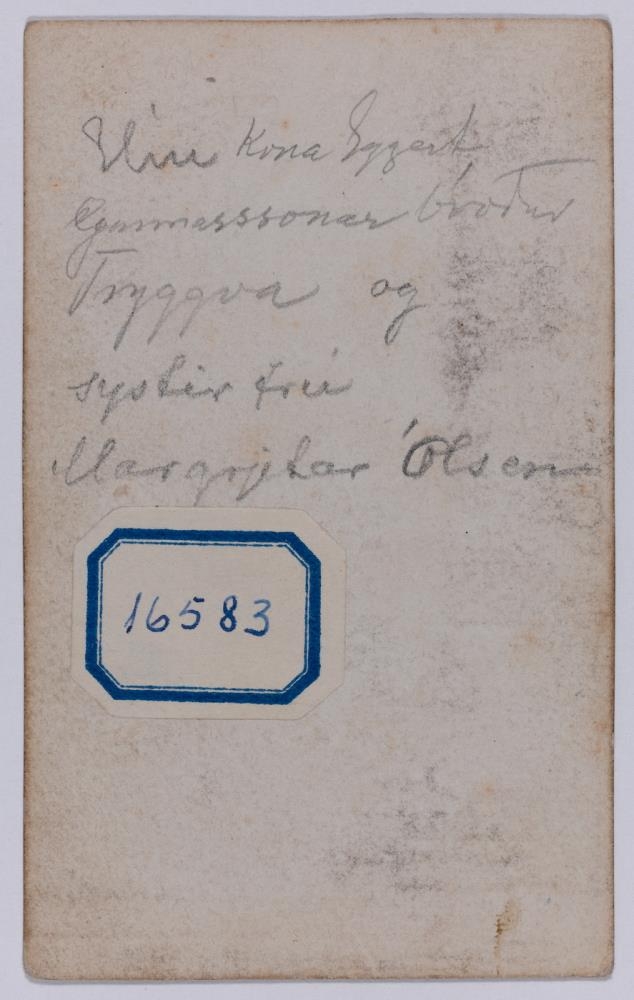 Elín Kona Eggert
Gunnarssonar bróður
Tryggva og
systir frú
Margrjetar Ólsen
16583